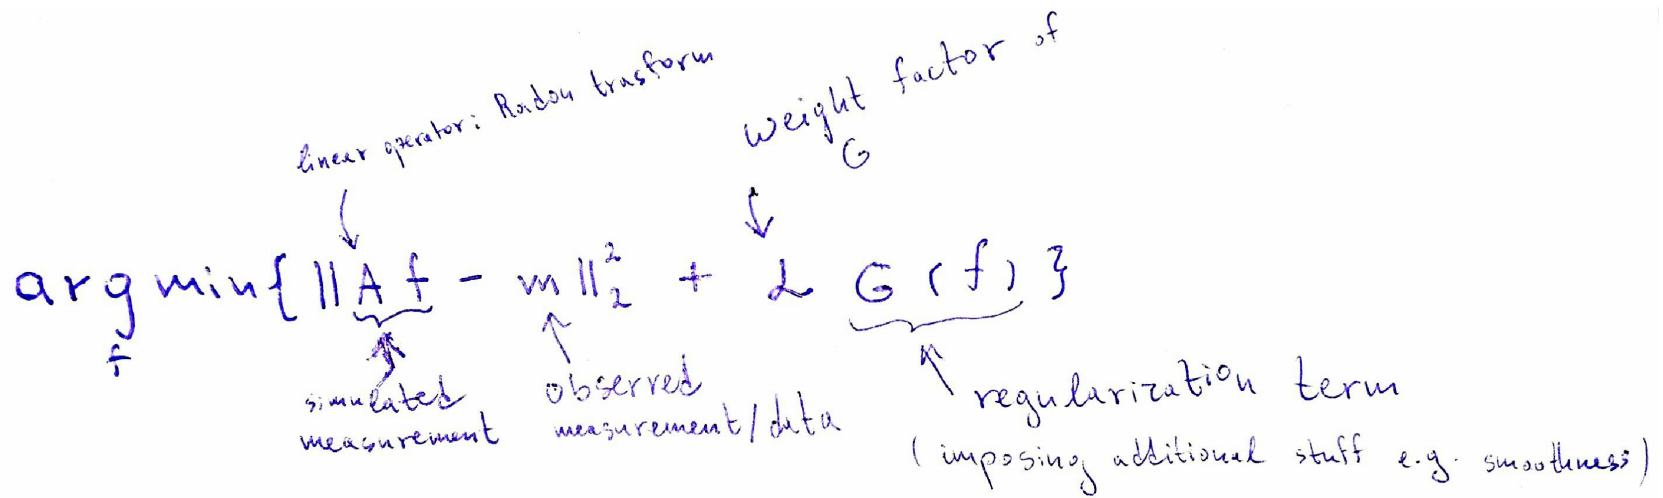 linear operator: Radon trasform
weight factor of
G
arg min{ ||A f - m||₂² + α G (f) }
f
simulated
measurement
observed
measurement/data
regularization term
(imposing additional stuff e.g. smoothness)